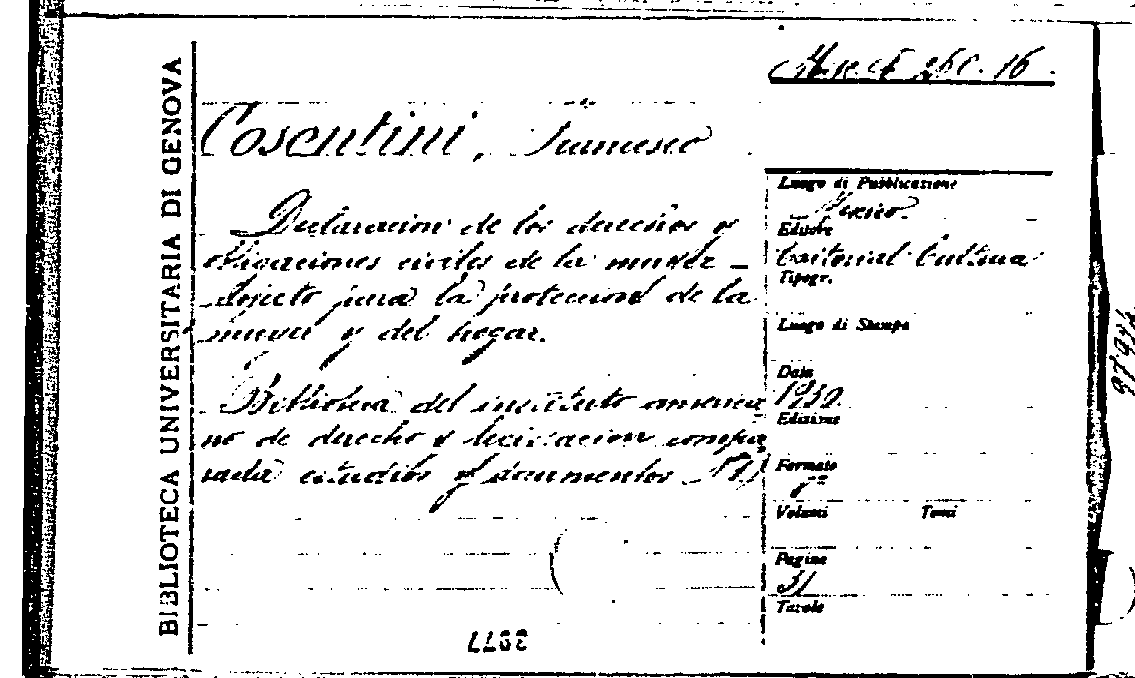 BIBLIOTECA UNIVERSITARIA DI GENOVA
16.
Cosentini, Francesco
Declaracion de los derechos y
obligaciones civiles de la mujer –
para la proteccion de la
mujer y del hogar.
Biblioteca del instituto america
no de derecho y legislacion compa
rada estudios y documentos
Luogo di Pubblicazione
Mexico.
Editore
Editorial Cultura
Tipogr.
Luogo di Stampa
Data
1939
Edizione
Formato
8°
Volumi Tomi
Pagine
31
Tavole